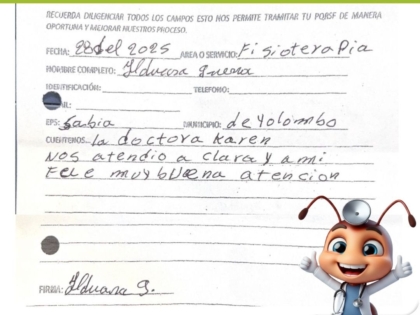 RECUERDA DILIGENCIAR TODOS LOS CAMPOS ESTO NOS PERMITE TRAMITAR TU PQRSF DE MANERA
OPORTUNA Y MEJORAR NUESTROS PROCESO.
FECHA: 28 del 2025 AREA O SERVICIO: Fisioterapia
NOMBRE COMPLETO: Ilduara guerra
IDENTIFICACIÓN: TELEFONO:
EPS: Sabia MUNICIPIO: de Yolombo
CUENTENOS: la doctora Karen
Nos atendio a clara y a mi
Fue muy buena atencion
FIRMA: Ilduara G.